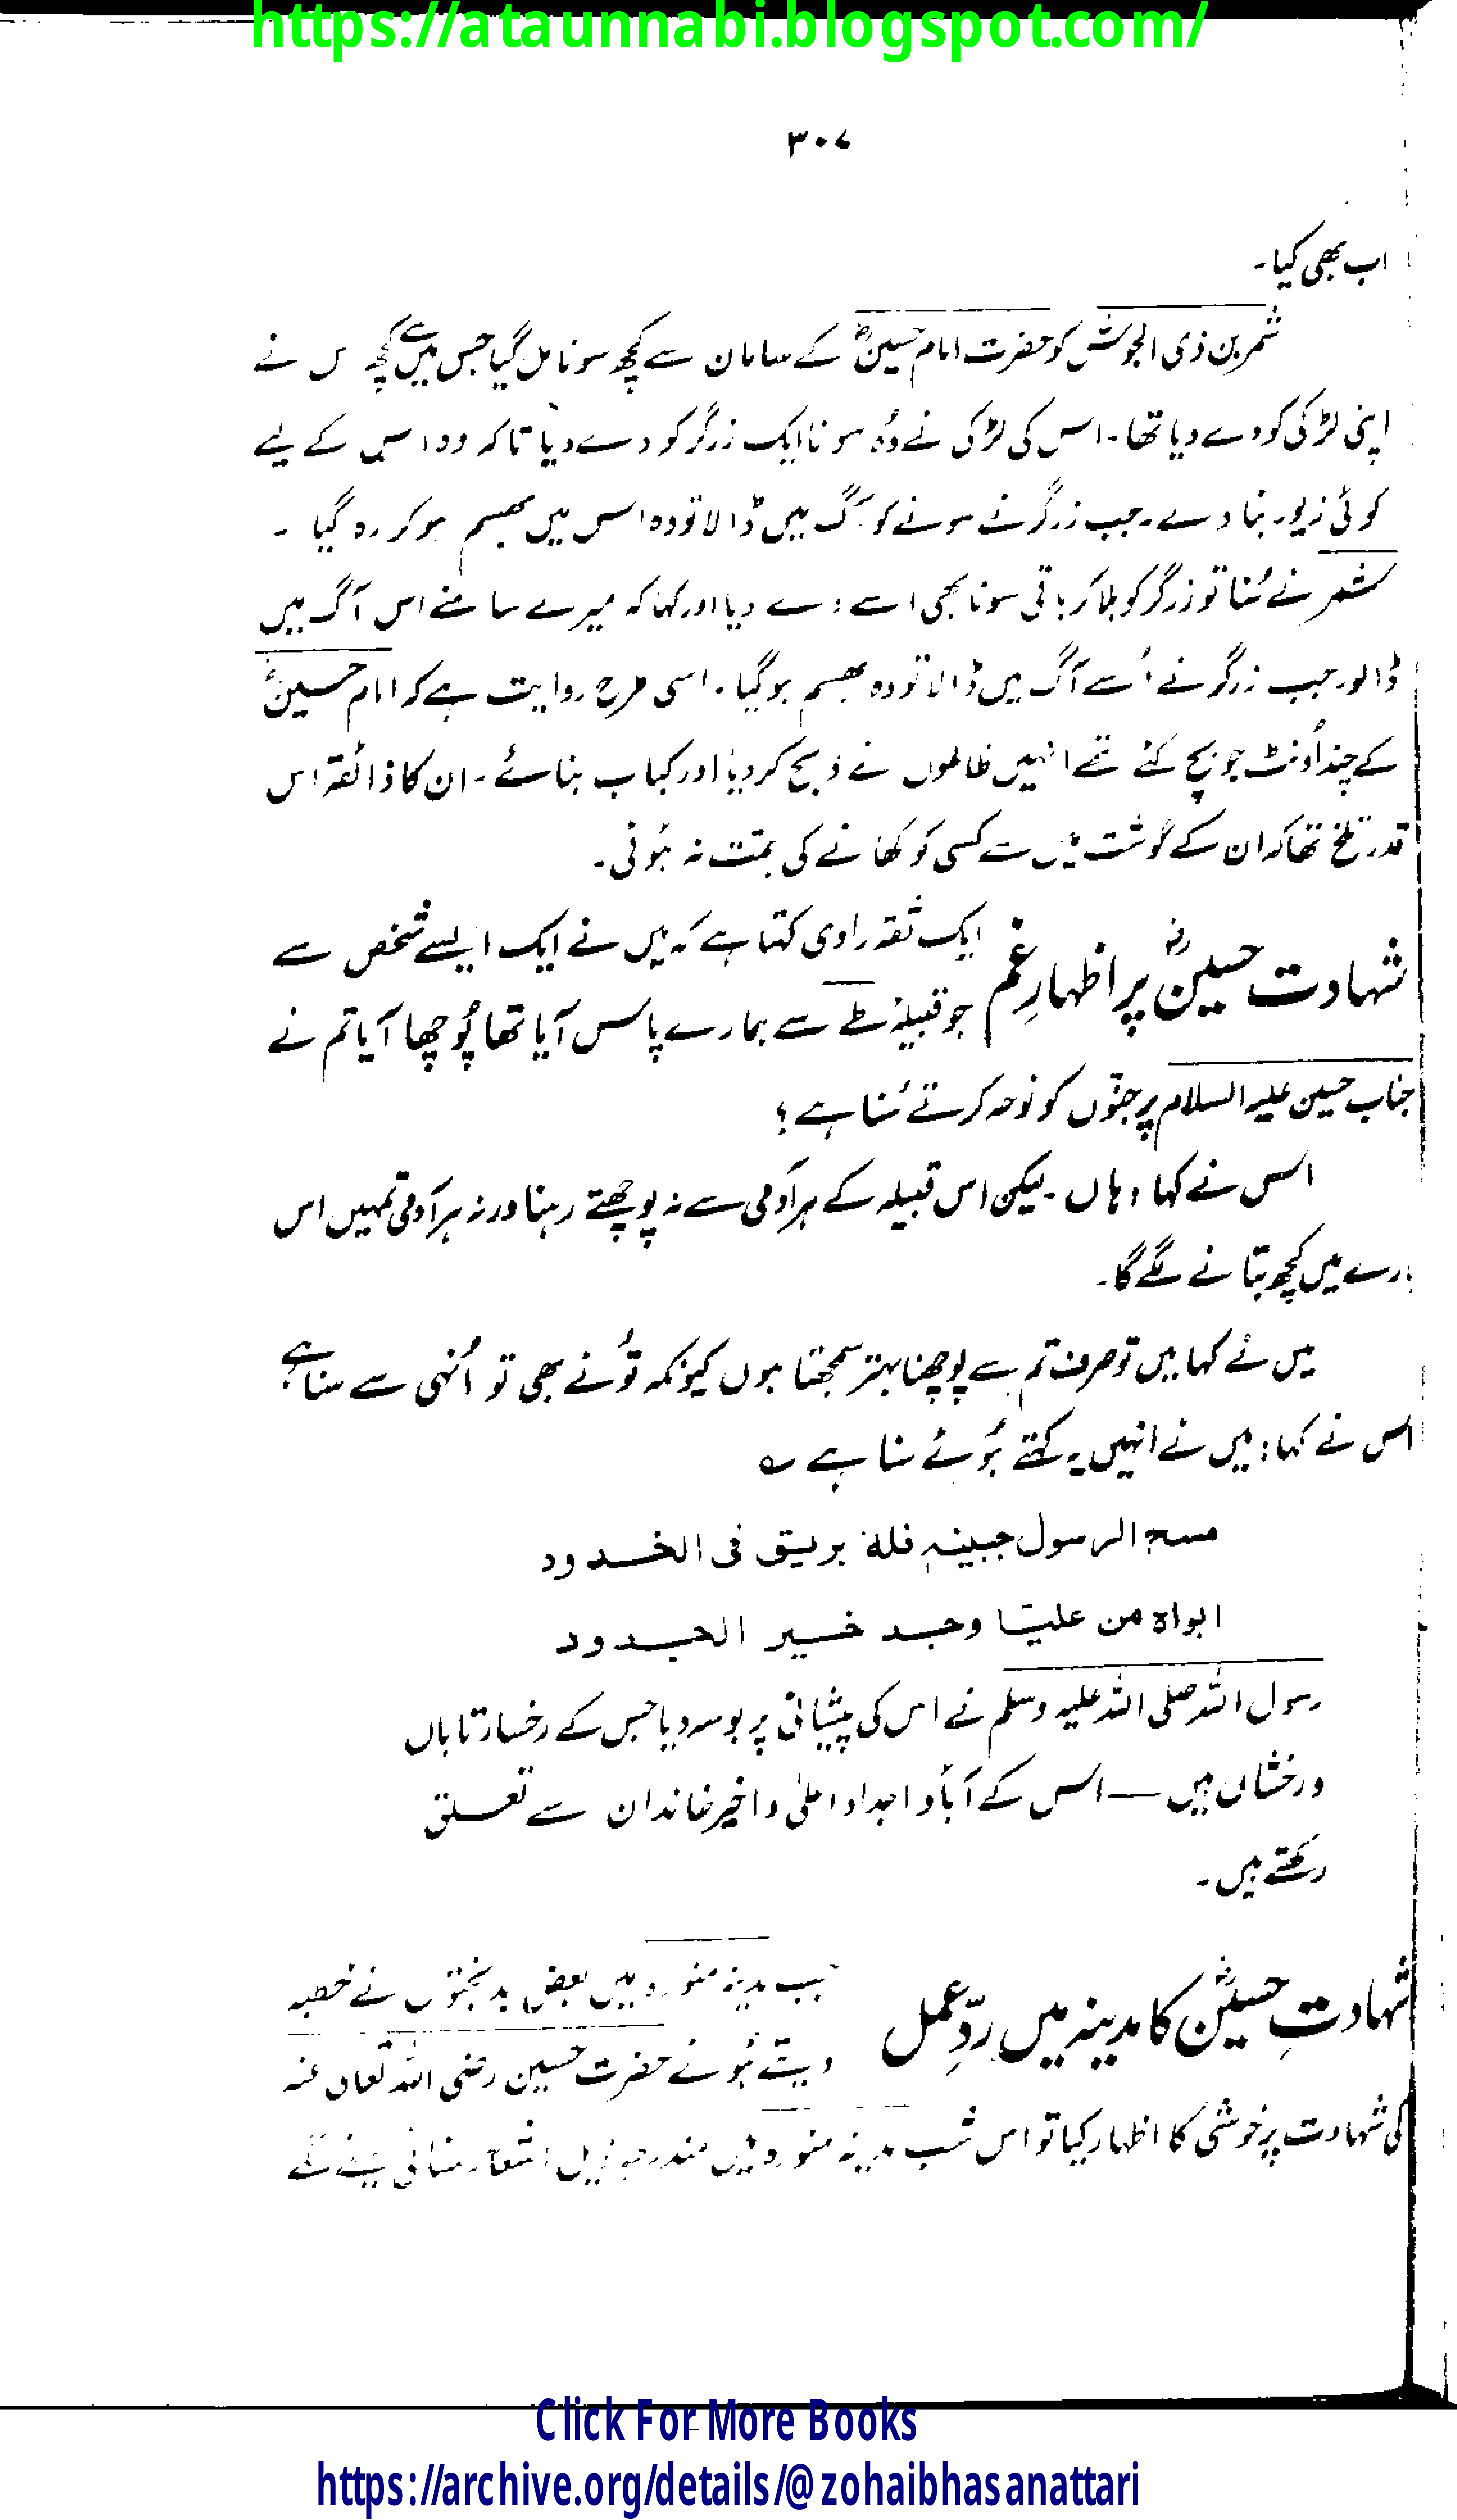 https://ataunnabi.blogspot.com/
۳۰۷
اب بھی کیا۔
شمر بن ذی الجوشن کو حضرت امام حسینؓ کے سامان سے کچھ سونا مل گیا جس میں سے کچھ س نے
اپنی لڑکی کو دے دیا تھا۔ اس کی لڑکی نے وُہ سونا ایک زرگر کو دے دیا تاکہ وہ اس کے لیے
کوئی زیور بنا دے۔ جب زرگر نے سونے کو آگ میں ڈالا تو وہ اس میں بھسم ہو کر رہ گیا ۔
شمر نے سُنا تو زرگر کو بلا کر باقی سونا بھی اسے دے دیا اور کہا کہ میرے سامنے اس آگ میں
ڈالو جب زرگر نے اُسے آگ میں ڈالا تو وہ بھسم ہو گیا۔ اسی طرح روایت ہے کہ امام حسینؓ
کے چند اُونٹ جو بچ گئے تھے انہیں ظالموں نے ذبح کر دیا اور کباب بنائے۔ ان کا ذائقہ اس
قدر تلخ تھا کہ ان کے گوشت میں سے کسی کو کھانے کی ہمت نہ ہُوئی۔
شہادت حسینؓ پر اظہارِ غم
ایک ثقہ راوی کہتا ہے کہ میں نے ایک ایسے شخص سے
جو قبیلۂ طے سے ہمارے پاس آیا تھا پُوچھا آیا تم نے
جناب حسین علیہ السلام پر جنّوں کو نوحہ کرتے سُنا ہے ؟
اس نے کہا ، ہاں۔ لیکن اس قبیلہ کے ہر آدمی سے نہ پوچھتے رہنا ورنہ ہر آدمی تمہیں اس
بارے میں کچھ بتانے لگے گا۔
میں نے کہا میں تو صرف تم سے پوچھنا بہتر سمجھتا ہوں کیونکہ تُو نے بھی تو اُنہی سے سنا ہے؟
اس نے کہا: میں نے انہیں یہ کہتے ہُوئے سنا ہے ؎
مسح الرسول جبینہ فلہ بریق فی الخدود
ابواہ من علیا وجد خیر الجدود
رسول اللہ صلی اللہ علیہ وسلم نے اس کی پیشانی پر بوسہ دیا جس کے رخسار تاباں
ورخشاں ہیں — اس کے آباؤ اجداد اعلیٰ و اخیر خاندان سے تعلق
رکھتے ہیں۔
شہادتِ حسینؓ کا مدینہ میں ردِّ عمل
جب مدینہ منورہ میں بعض بدبختوں نے خطبہ
دیتے ہُوئے حضرت حسین رضی اللہ تعالیٰ عنہ
کی شہادت پر خوشی کا اظہار کیا تو اس شب مدینہ منورہ میں مندرجہ ذیل اشعار سنائی دینے لگے
Click For More Books
https://archive.org/details/@zohaibhasanattari